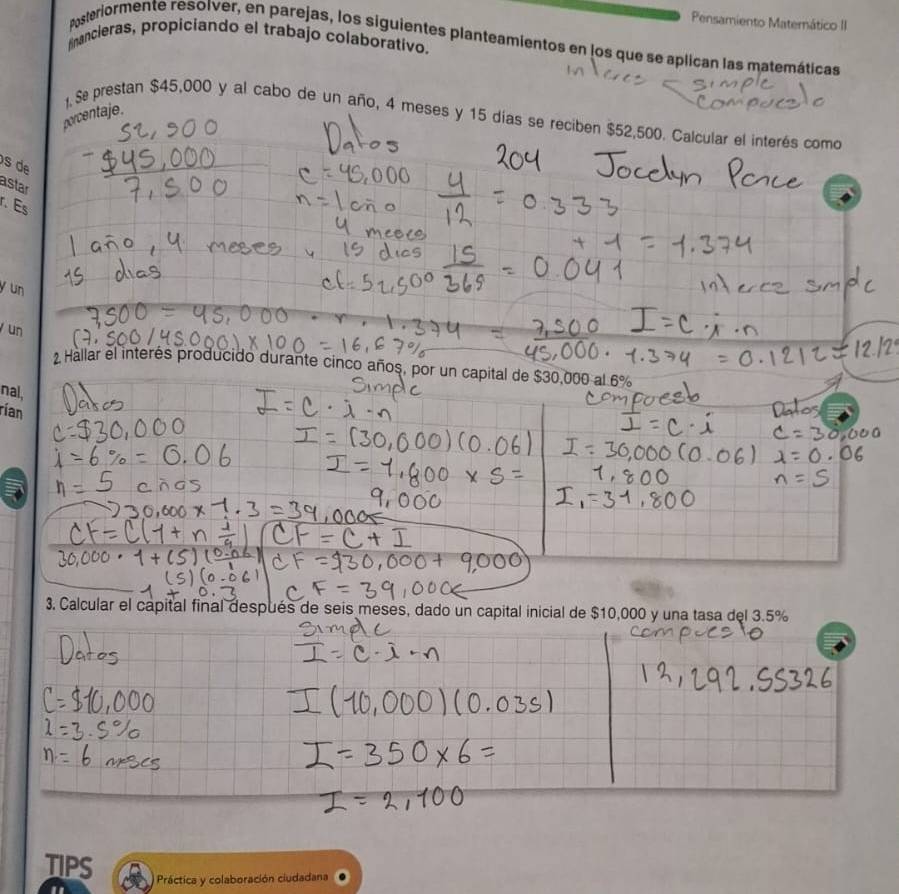 Pensamiento Matemático II
posteriormente resolver, en parejas, los siguientes planteamientos en los que se aplican las matemáticas
financieras, propiciando el trabajo colaborativo.
simple
1. Se prestan $45,000 y al cabo de un año, 4 meses y 15 días se reciben $52,500. Calcular el interés como
porcentaje.
52,500
- $45,000
7,500
Datos
C = 45,000
n = 1 año
4 meses
15 dias
204 Jocelyn Ponce
4/12 = 0.333
+ 1 = 1.374
15/365 = 0.041
1 año, 4 meses y 15 dias
cf = 52,500
I = C · i · n
7,500 = 45,000 · r · 1.374 = 7,500
45,000 · 1.374 = 0.1212 = 12.12
(7,500/45,000) x 100 = 16.67%
2. Hallar el interés producido durante cinco años, por un capital de $30,000 al 6%
Datos
C = $30,000
i = 6% = 0.06
n = 5 años
Simple
I = C · i · n
I = (30,000)(0.06)
I = 1,800 x 5 =
9,000
I = C · i
I = 30,000 (0.06)
1,800
I₁ = 31,800
Datos
C = 30,000
i = 0.06
n = 5
30,000 x 1.3 = 39,000
30,000 · 1 + (5) (0.06)
(5) (0.06)
1 + 0.3
CF = C + I
CF = $30,000 + 9,000
CF = 39,000
3. Calcular el capital final después de seis meses, dado un capital inicial de $10,000 y una tasa del 3.5%
Datos
C = $10,000
i = 3.5%
n = 6 meses
simple
I = C · i · n
I (10,000) (0.035)
I = 350 x 6 =
I = 2,100
compuesto
12,292.55326
TIPS
Práctica y colaboración ciudadana
os de
astar
r. Es
y un
y un
nal,
rían